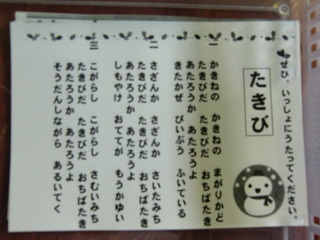 ぜひ、いっしょにうたってください。
たきび
一
かきねの　かきねの　まがりかど
たきびだ　たきびだ　おちばたき
あたろうか　あたろうよ
きたかぜ　ぴいぷう　ふいている
二
さざんか　さざんか　さいたみち
たきびだ　たきびだ　おちばたき
あたろうか　あたろうよ
しもやけ　おててが　もうかゆい
三
こがらし　こがらし　さむいみち
たきびだ　たきびだ　おちばたき
あたろうか　あたろうよ
そうだんしながら　あるいてく